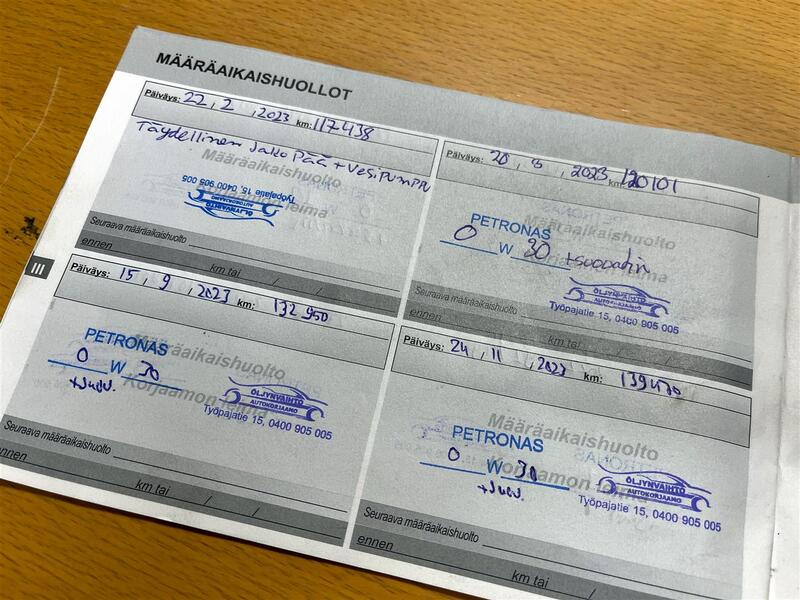 MÄÄRÄAIKAISHUOLLOT
Päiväys: 22 , 2 , 2023 km: 117438
Täydellinen Jako Pää + Vesipumppu
Määräaikaishuolto
Korjaamon leima
Työpajatie 15, 0400 905 005
AUTOKORJAAMO
ÖLJYNVAIHTO
Seuraava määräaikaishuolto
ennen / / km tai
Päiväys: 20 , 3 , 2023 km: 120101
Määräaikaishuolto
PETRONAS
0 W 30 + suodatin
ÖLJYNVAIHTO
AUTOKORJAAMO
Työpajatie 15, 0400 905 005
Seuraava määräaikaishuolto
ennen / / km tai
III
Päiväys: 15 , 9 , 2023 km: 132 950
PETRONAS
Määräaikaishuolto
0 W 30
Korjaamon leima
ÖLJYNVAIHTO
AUTOKORJAAMO
Työpajatie 15, 0400 905 005
Seuraava määräaikaishuolto
ennen / / km tai
Päiväys: 24 , 11 , 2023 km: 139430
Määräaikaishuolto
PETRONAS
0 W 30
Korjaamon leima
ÖLJYNVAIHTO
AUTOKORJAAMO
Työpajatie 15, 0400 905 005
Seuraava määräaikaishuolto
ennen / / km tai